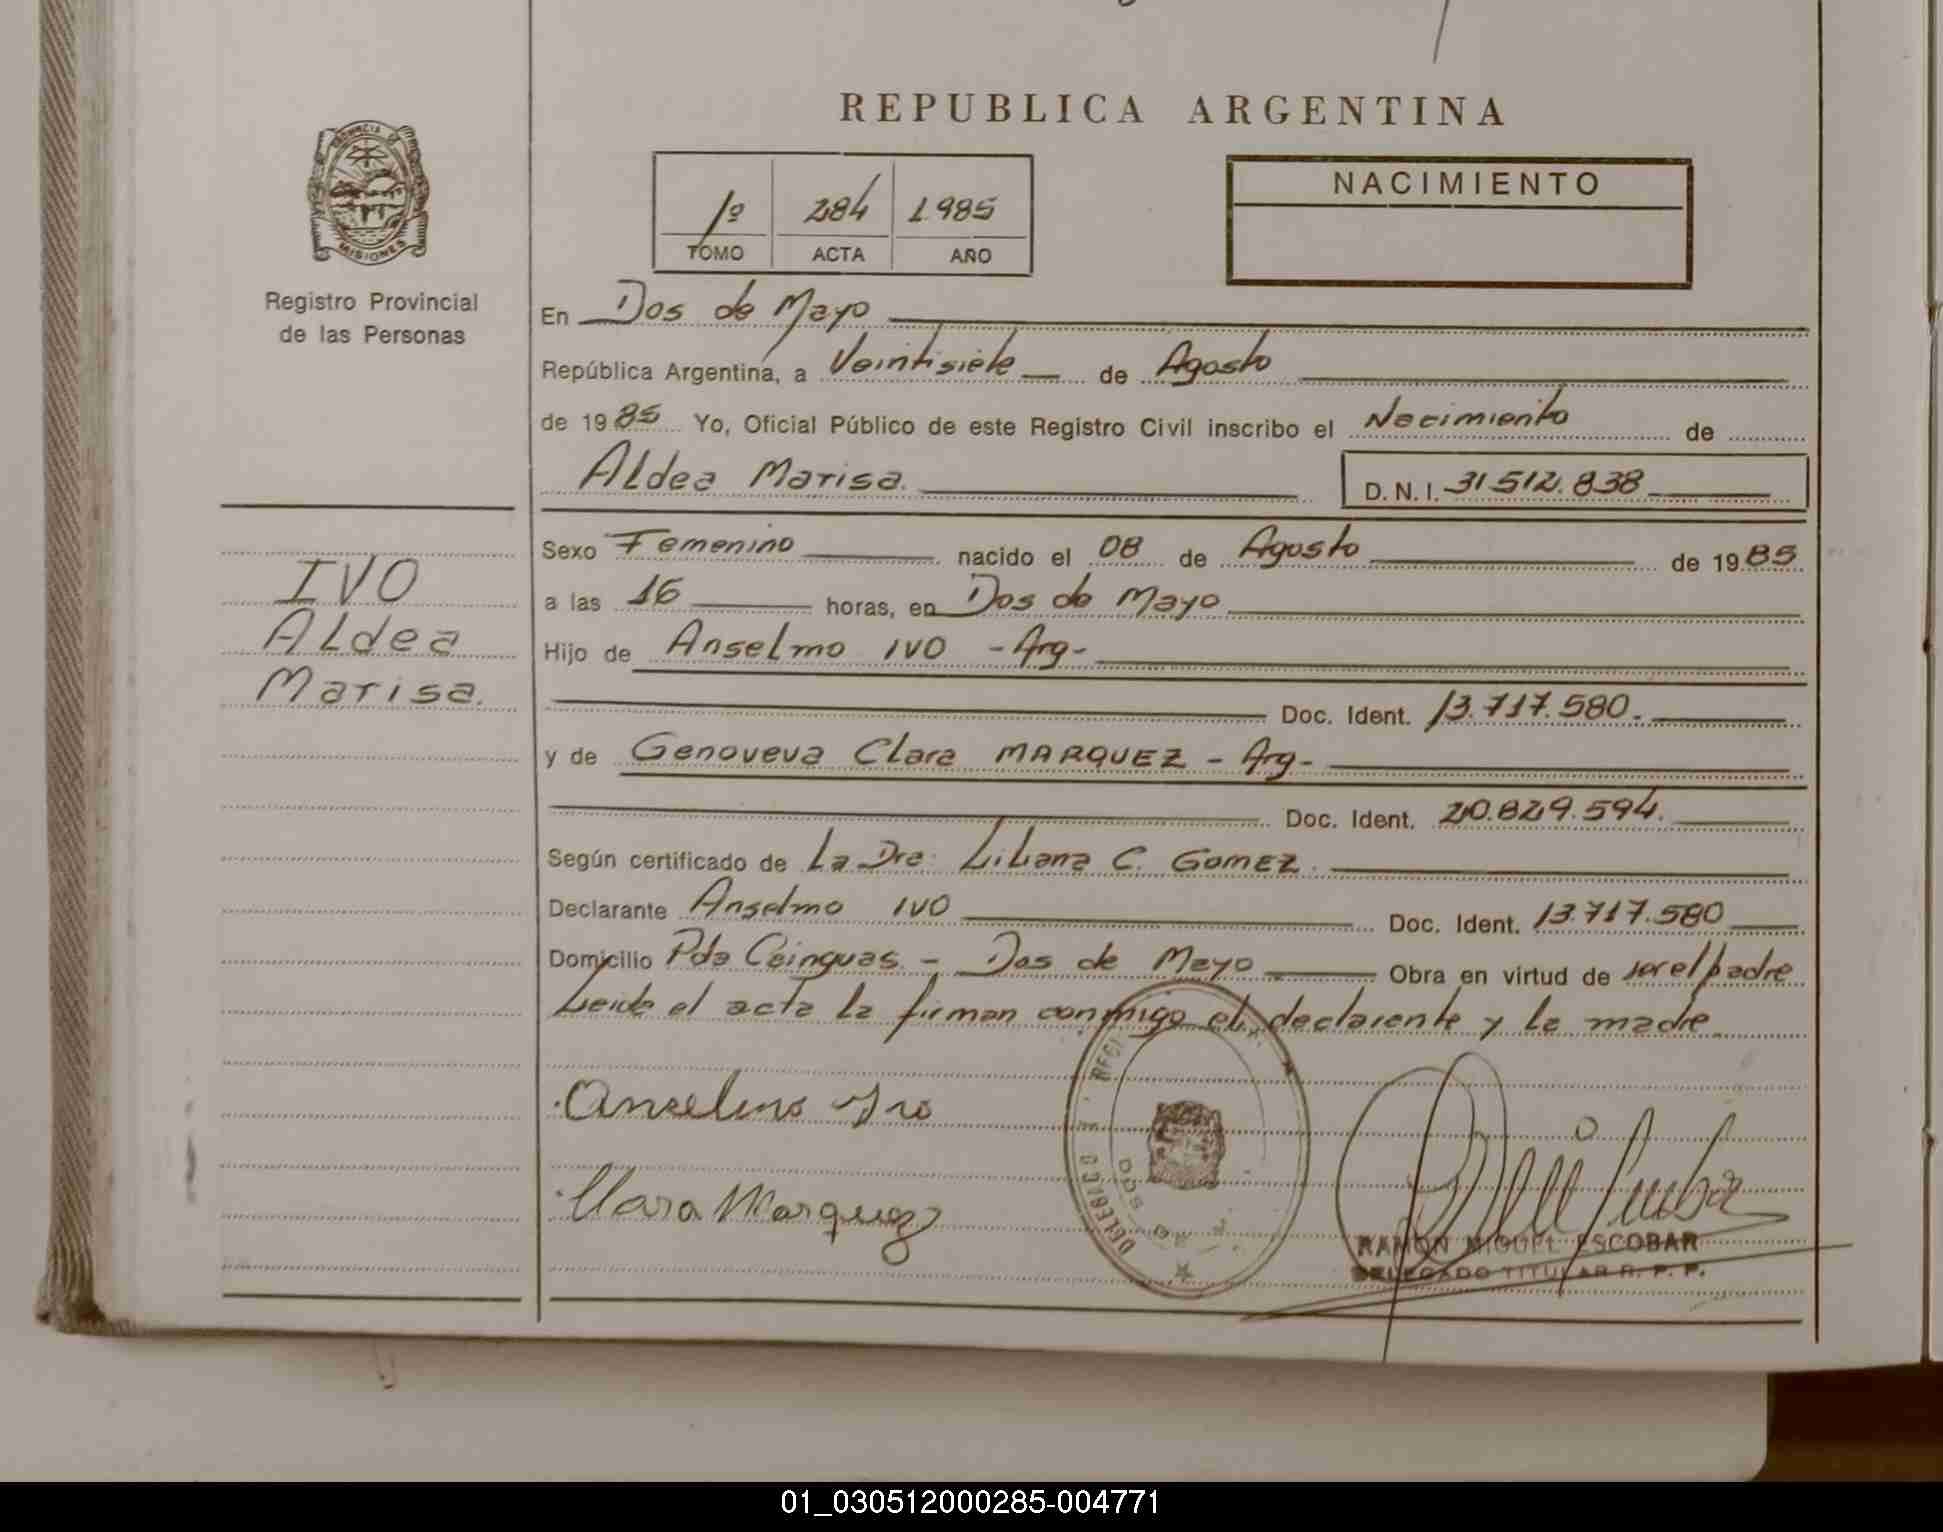 REPUBLICA ARGENTINA
PROVINCIA DE
MISIONES
Registro Provincial
de las Personas
1º 284 1985
TOMO ACTA AÑO
NACIMIENTO
En Dos de Mayo
República Argentina, a Veintisiete de Agosto
de 1985 Yo, Oficial Público de este Registro Civil inscribo el Nacimiento de
Aldea Marisa. D. N. I. 31.512.838
IVO
Aldea
Marisa.
Sexo Femenino nacido el 08 de Agosto de 1985.
a las 16 horas, en Dos de Mayo
Hijo de Anselmo IVO -Arg-
Doc. Ident. 13.717.580.
y de Genoveva Clara MARQUEZ - Arg-
Doc. Ident. 20.829.594.
Según certificado de La Dra. Liliana C. GOMEZ.
Declarante Anselmo IVO Doc. Ident. 13.717.580
Domicilio Pda Cainguas. - Dos de Mayo Obra en virtud de ser el padre
Leida el acta la firman conmigo el declarante y la madre
Anselmo Ivo
Clara Marquez
RAMON MIGUEL ESCOBAR
DELEGADO TITULAR R. P. P.
01_030512000285-004771